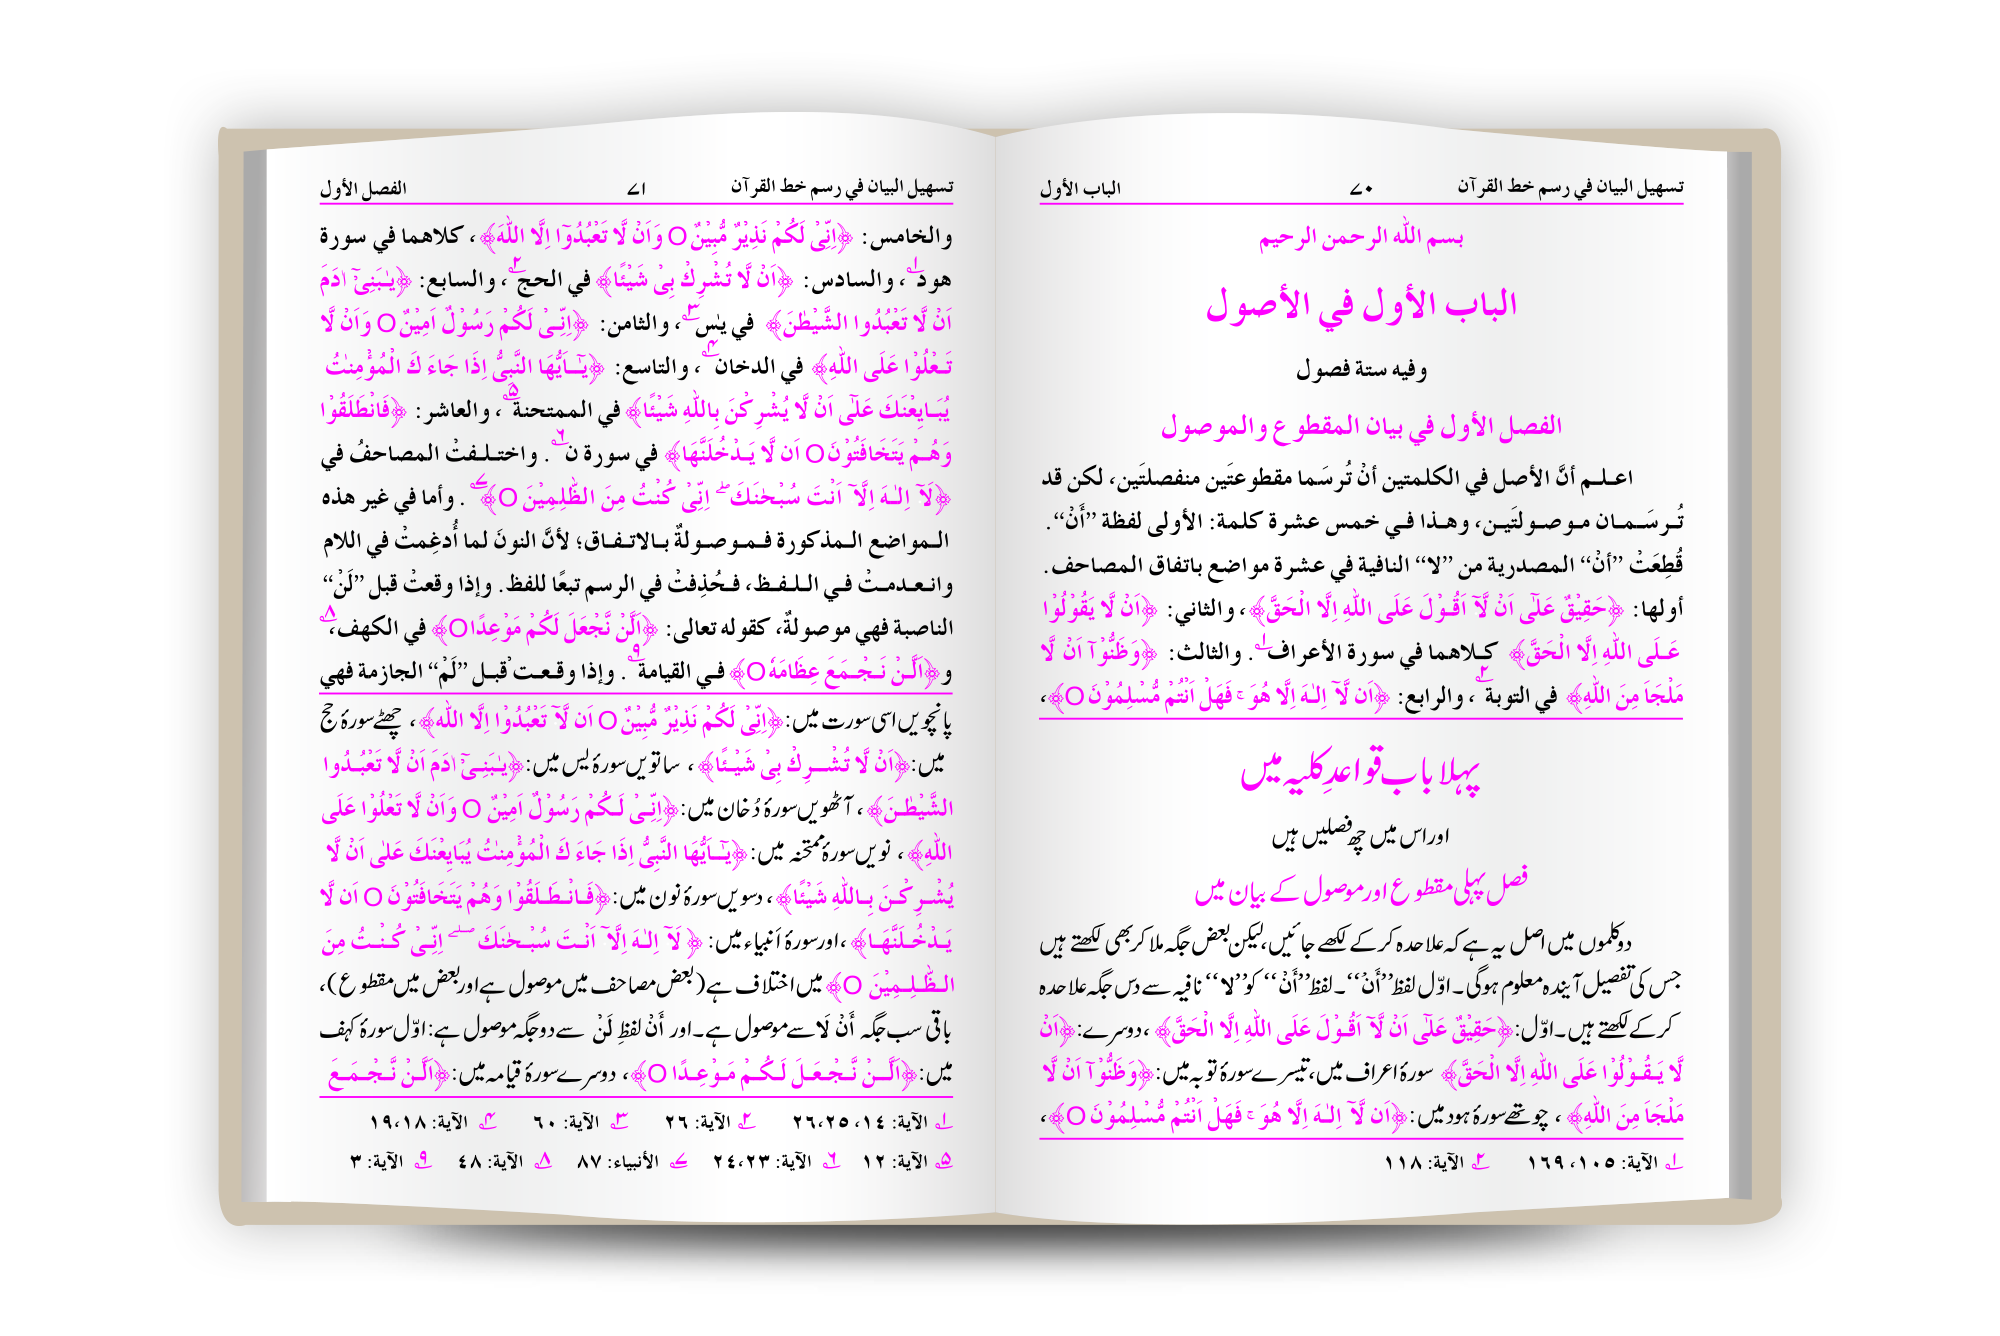 تسهيل البيان في رسم خط القرآن ٧٠ الباب الأول
بسم الله الرحمن الرحيم
الباب الأول في الأصول
وفيه ستة فصول
الفصل الأول في بيان المقطوع والموصول
اعلم أنَّ الأصل في الكلمتين أنْ تُرسَما مقطوعتَين منفصلتَين، لكن قد
تُرسَمان موصولتَين، وهذا في خمس عشرة كلمة: الأولى لفظة ”أَنْ“.
قُطِعَتْ ”أنْ“ المصدرية من ”لا“ النافية في عشرة مواضع باتفاق المصاحف.
أولها: ﴿حَقِيْقٌ عَلٰٓى اَنْ لَّآ اَقُوْلَ عَلَى اللّٰهِ اِلَّا الْحَقَّ﴾، والثاني: ﴿اَنْ لَّا يَقُوْلُوْا
عَلَى اللّٰهِ اِلَّا الْحَقَّ﴾ كلاهما في سورة الأعراف۱. والثالث: ﴿وَظَنُّوْٓا اَنْ لَّا
مَلْجَاَ مِنَ اللّٰهِ﴾ في التوبة۲، والرابع: ﴿اَن لَّآ اِلٰهَ اِلَّا هُوَ ۚ فَهَلْ اَنْتُمْ مُّسْلِمُوْنَ O﴾،
پہلا باب قواعدِ کلیہ میں
اور اس میں چھ فصلیں ہیں
فصل پہلی مقطوع اور موصول کے بیان میں
دو کلموں میں اصل یہ ہے کہ علاحدہ کرکے لکھے جائیں، لیکن بعض جگہ ملا کر بھی لکھتے ہیں
جس کی تفصیل آیندہ معلوم ہوگی۔ اوّل لفظ ”أَنْ“۔ لفظ ”أَنْ“ کو ”لا“ نافیہ سے دس جگہ علاحدہ
کرکے لکھتے ہیں۔ اوّل: ﴿حَقِيْقٌ عَلٰٓى اَنْ لَّآ اَقُوْلَ عَلَى اللّٰهِ اِلَّا الْحَقَّ﴾، دوسرے: ﴿اَنْ
لَّا يَقُوْلُوْا عَلَى اللّٰهِ اِلَّا الْحَقَّ﴾ سورۂ اعراف میں، تیسرے سورۂ توبہ میں: ﴿وَظَنُّوْٓا اَنْ لَّا
مَلْجَاَ مِنَ اللّٰهِ﴾، چوتھے سورۂ ہود میں: ﴿اَن لَّآ اِلٰهَ اِلَّا هُوَ ۚ فَهَلْ اَنْتُمْ مُّسْلِمُوْنَ O﴾،
۱ الآية: ١٠٥، ١٦٩ ۲ الآية: ١١٨
تسهيل البيان في رسم خط القرآن ٧١ الفصل الأول
والخامس: ﴿اِنِّىْ لَكُمْ نَذِيْرٌ مُّبِيْنٌ O وَاَنْ لَّا تَعْبُدُوْٓا اِلَّا اللّٰهَ﴾، كلاهما في سورة
هود۱، والسادس: ﴿اَنْ لَّا تُشْرِكْ بِىْ شَيْـًٔا﴾ في الحج۲، والسابع: ﴿يٰبَنِىْٓ اٰدَمَ
اَنْ لَّا تَعْبُدُوا الشَّيْطٰنَ﴾ في يٰس۳، والثامن: ﴿اِنِّىْ لَكُمْ رَسُوْلٌ اَمِيْنٌ O وَاَنْ لَّا
تَعْلُوْا عَلَى اللّٰهِ﴾ في الدخان۴، والتاسع: ﴿يٰٓـاَيُّهَا النَّبِىُّ اِذَا جَاءَكَ الْمُؤْمِنٰتُ
يُبَايِعْنَكَ عَلٰٓى اَنْ لَّا يُشْرِكْنَ بِاللّٰهِ شَيْـًٔا﴾ في الممتحنة۵، والعاشر: ﴿فَانْطَلَقُوْا
وَهُمْ يَتَخَافَتُوْنَ O اَن لَّا يَدْخُلَنَّهَا﴾ في سورة نٓ۶. واختلفتْ المصاحفُ في
﴿لَآ اِلٰهَ اِلَّآ اَنْتَ سُبْحٰنَكَ ۖ اِنِّىْ كُنْتُ مِنَ الظّٰلِمِيْنَ O﴾۷. وأما في غير هذه
المواضع المذكورة فموصولةٌ بالاتفاق؛ لأنَّ النونَ لما أُدغِمتْ في اللام
وانعدمتْ في اللفظ، فحُذِفتْ في الرسم تبعًا للفظ. وإذا وقعتْ قبل ”لَنْ“
الناصبة فهي موصولةٌ، كقوله تعالى: ﴿اَلَّنْ نَّجْعَلَ لَكُمْ مَوْعِدًا O﴾ في الكهف،۸
و﴿اَلَّنْ نَجْمَعَ عِظَامَهٗ O﴾ في القيامة۹. وإذا وقعتْ قبل ”لَمْ“ الجازمة فهي
پانچویں اسی سورت میں: ﴿اِنِّىْ لَكُمْ نَذِيْرٌ مُّبِيْنٌ O اَن لَّآ تَعْبُدُوْٓا اِلَّا اللّٰه﴾، چھٹے سورۂ حج
میں: ﴿اَنْ لَّا تُشْرِكْ بِىْ شَيْـًٔا﴾، ساتویں سورۂ یٰس میں: ﴿يٰبَنِىْٓ اٰدَمَ اَنْ لَّا تَعْبُدُوا
الشَّيْطٰنَ﴾، آٹھویں سورۂ دُخان میں: ﴿اِنِّىْ لَكُمْ رَسُوْلٌ اَمِيْنٌ O وَاَنْ لَّا تَعْلُوْا عَلَى
اللّٰهِ﴾، نویں سورۂ ممتحنہ میں: ﴿يٰٓـاَيُّهَا النَّبِىُّ اِذَا جَاءَكَ الْمُؤْمِنٰتُ يُبَايِعْنَكَ عَلٰى اَنْ لَّا
يُشْرِكْنَ بِاللّٰهِ شَيْـًٔا﴾، دسویں سورۂ نون میں: ﴿فَانْطَلَقُوْا وَهُمْ يَتَخَافَتُوْنَ O اَن لَّا
يَدْخُلَنَّهَا﴾، اور سورۂ اَنبیاء میں: ﴿لَآ اِلٰهَ اِلَّآ اَنْتَ سُبْحٰنَكَ ۖ اِنِّىْ كُنْتُ مِنَ
الظّٰلِمِيْنَ O﴾ میں اختلاف ہے (بعض مصاحف میں موصول ہے اور بعض میں مقطوع)،
باقی سب جگہ أَنْ لَا سے موصول ہے۔ اور أَنْ لفظِ لَنْ سے دو جگہ موصول ہے: اوّل سورۂ کہف
میں: ﴿اَلَّنْ نَّجْعَلَ لَكُمْ مَوْعِدًا O﴾، دوسرے سورۂ قیامہ میں: ﴿اَلَّنْ نَّجْمَعَ
۱ الآية: ١٤، ٢٥، ٢٦ ۲ الآية: ٢٦ ۳ الآية: ٦٠ ۴ الآية: ١٨، ١٩
۵ الآية: ١٢ ۶ الآية: ٢٣، ٢٤ ۷ الأنبياء: ٨٧ ۸ الآية: ٤٨ ۹ الآية: ٣